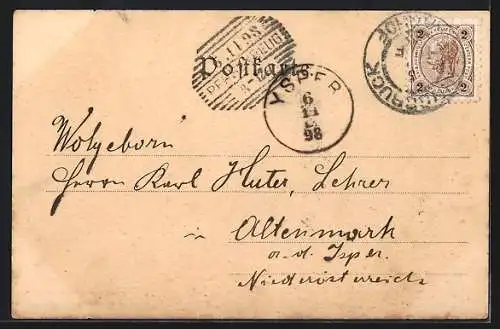 2
2
Postkarte.
11.98
YSPER
6
11
98
Wolgeborn
Herrn Karl Huter, Lehrer
in Altenmark
a. d. Isper.
Niederösterreich